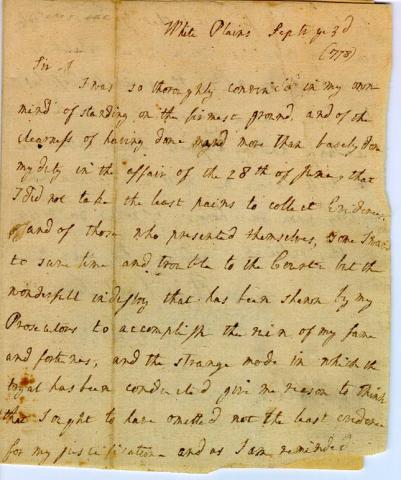 White Plains Septr ye 3d
(1778)
Sir
I was so thoroughly convinc'd in my own
mind of standing on the firmest ground and of the
clearness of having done and more than barely done
my duty in the affair of the 28th of June, that
I did not take the least pains to collect Evidences
and of those who presented themselves, some I wav'd
to save time and trouble to the Court but the
wonderfull industry that has been shewn by my
Prosecutors to accomplish the ruin of my fame
and fortunes, and the strange mode in which the
tryal has been conducted give me reason to think
that I ought to have omitted not the least evidence
for my justification and as I am reminded